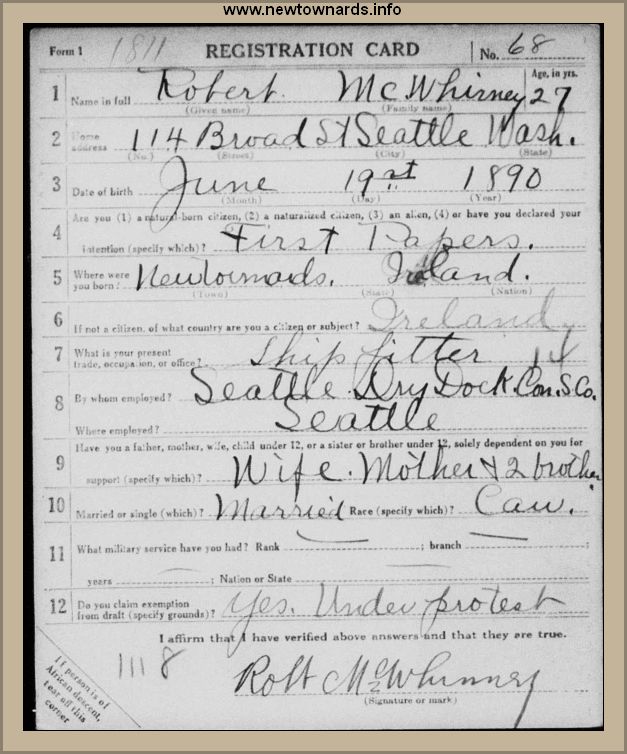 www.newtownards.info
Form 1 1811 REGISTRATION CARD No. 68
1 Name in full Robert McWhinney Age, in yrs. 27
(Given name) (Family name)
2 Home address 114 Broad St Seattle Wash.
(No.) (Street) (City) (State)
3 Date of birth June 19st 1890
(Month) (Day) (Year)
Are you (1) a natural-born citizen, (2) a naturalized citizen, (3) an alien, (4) or have you declared your
4 intention (specify which)? First Papers.
5 Where were you born? Newtownards. Ireland.
(Town) (State) (Nation)
6 If not a citizen, of what country are you a citizen or subject? Ireland
7 What is your present trade, occupation, or office? Ship fitter 14
8 By whom employed? Seattle Dry Dock. Con. S Co.
Where employed? Seattle
Have you a father, mother, wife, child under 12, or a sister or brother under 12, solely dependent on you for
9 support (specify which)? Wife. Mother & 2 brother
10 Married or single (which)? Married Race (specify which)? Cau.
11 What military service have you had? Rank ; branch ;
years ; Nation or State
12 Do you claim exemption from draft (specify grounds)? Yes. Under protest
I affirm that I have verified above answers and that they are true.
1118
Robt McWhinney
(Signature or mark)
If person is of
African descent,
tear off this
corner